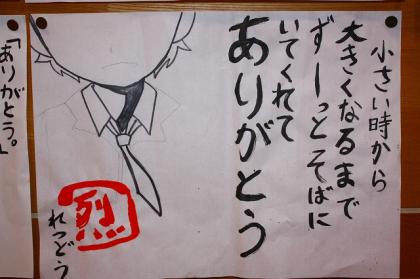 小さい時から
大きくなるまで
ずーっとそばに
いてくれて
ありがとう
烈
れつどう
「ありがとう。」